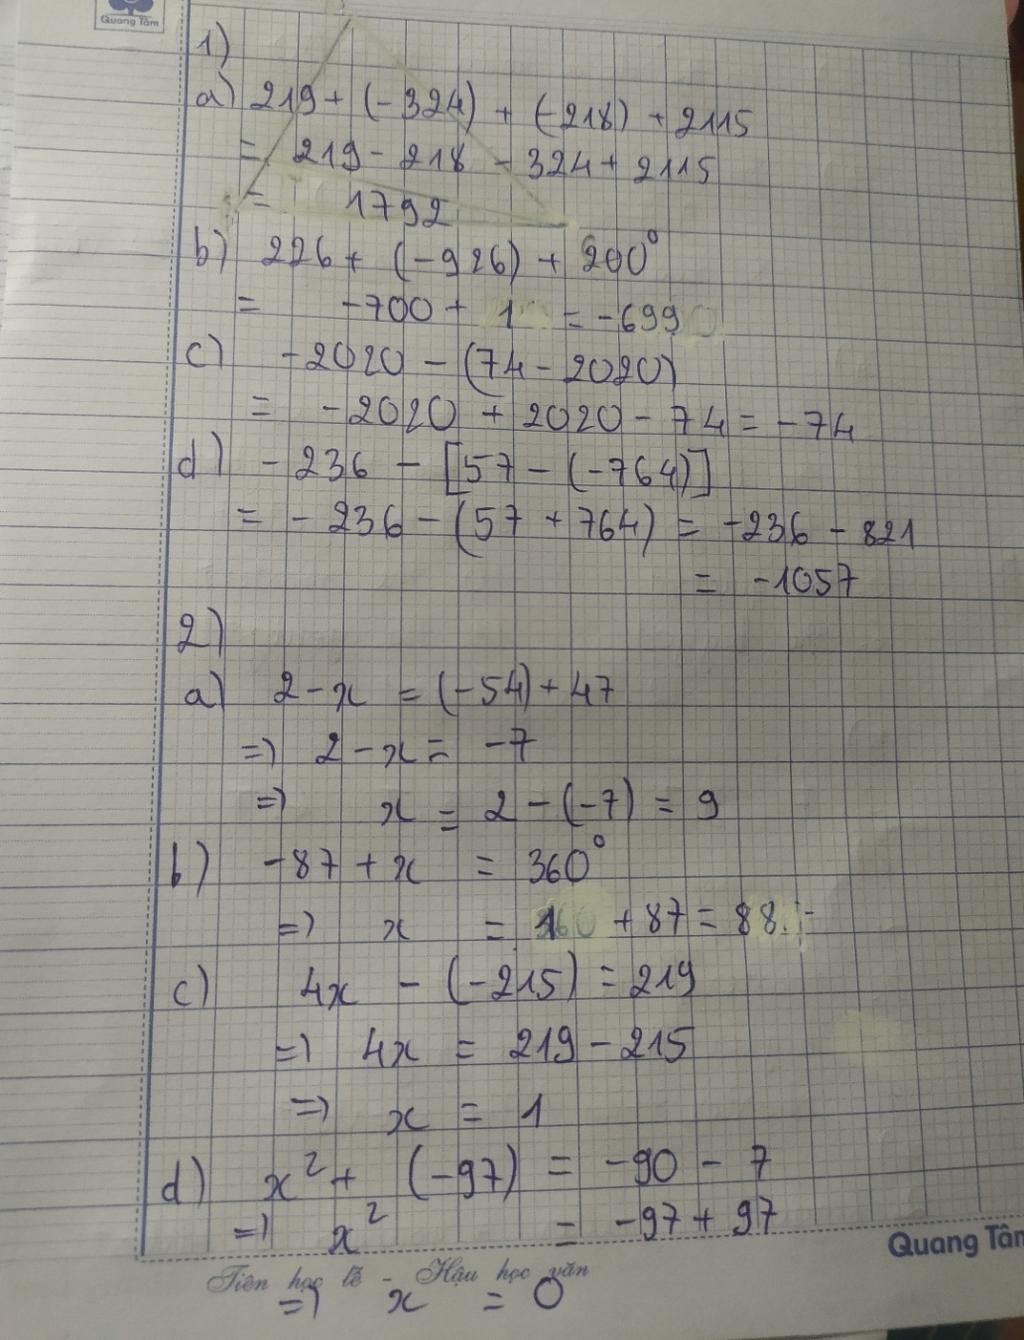 Quang Tâm
1)
a) 219 + (-324) + (-218) + 2115
= 219 - 218 - 324 + 2115
= 1792
b) 226 + (-926) + 200⁰
= -700 + 1 = -699
c) -2020 - (74 - 2020)
= -2020 + 2020 - 74 = -74
d) -236 - [57 - (-764)]
= -236 - (57 + 764) = -236 - 821
= -1057
2)
a) 2 - x = (-54) + 47
=> 2 - x = -7
=> x = 2 - (-7) = 9
b) -87 + x = 360⁰
=> x = 1 + 87 = 88
c) 4x - (-215) = 219
=> 4x = 219 - 215
=> x = 1
d) x² + (-97) = -90 - 7
=> x² = -97 + 97
Quang Tâm
Tiên học lễ - Hậu học văn
=> x = 0